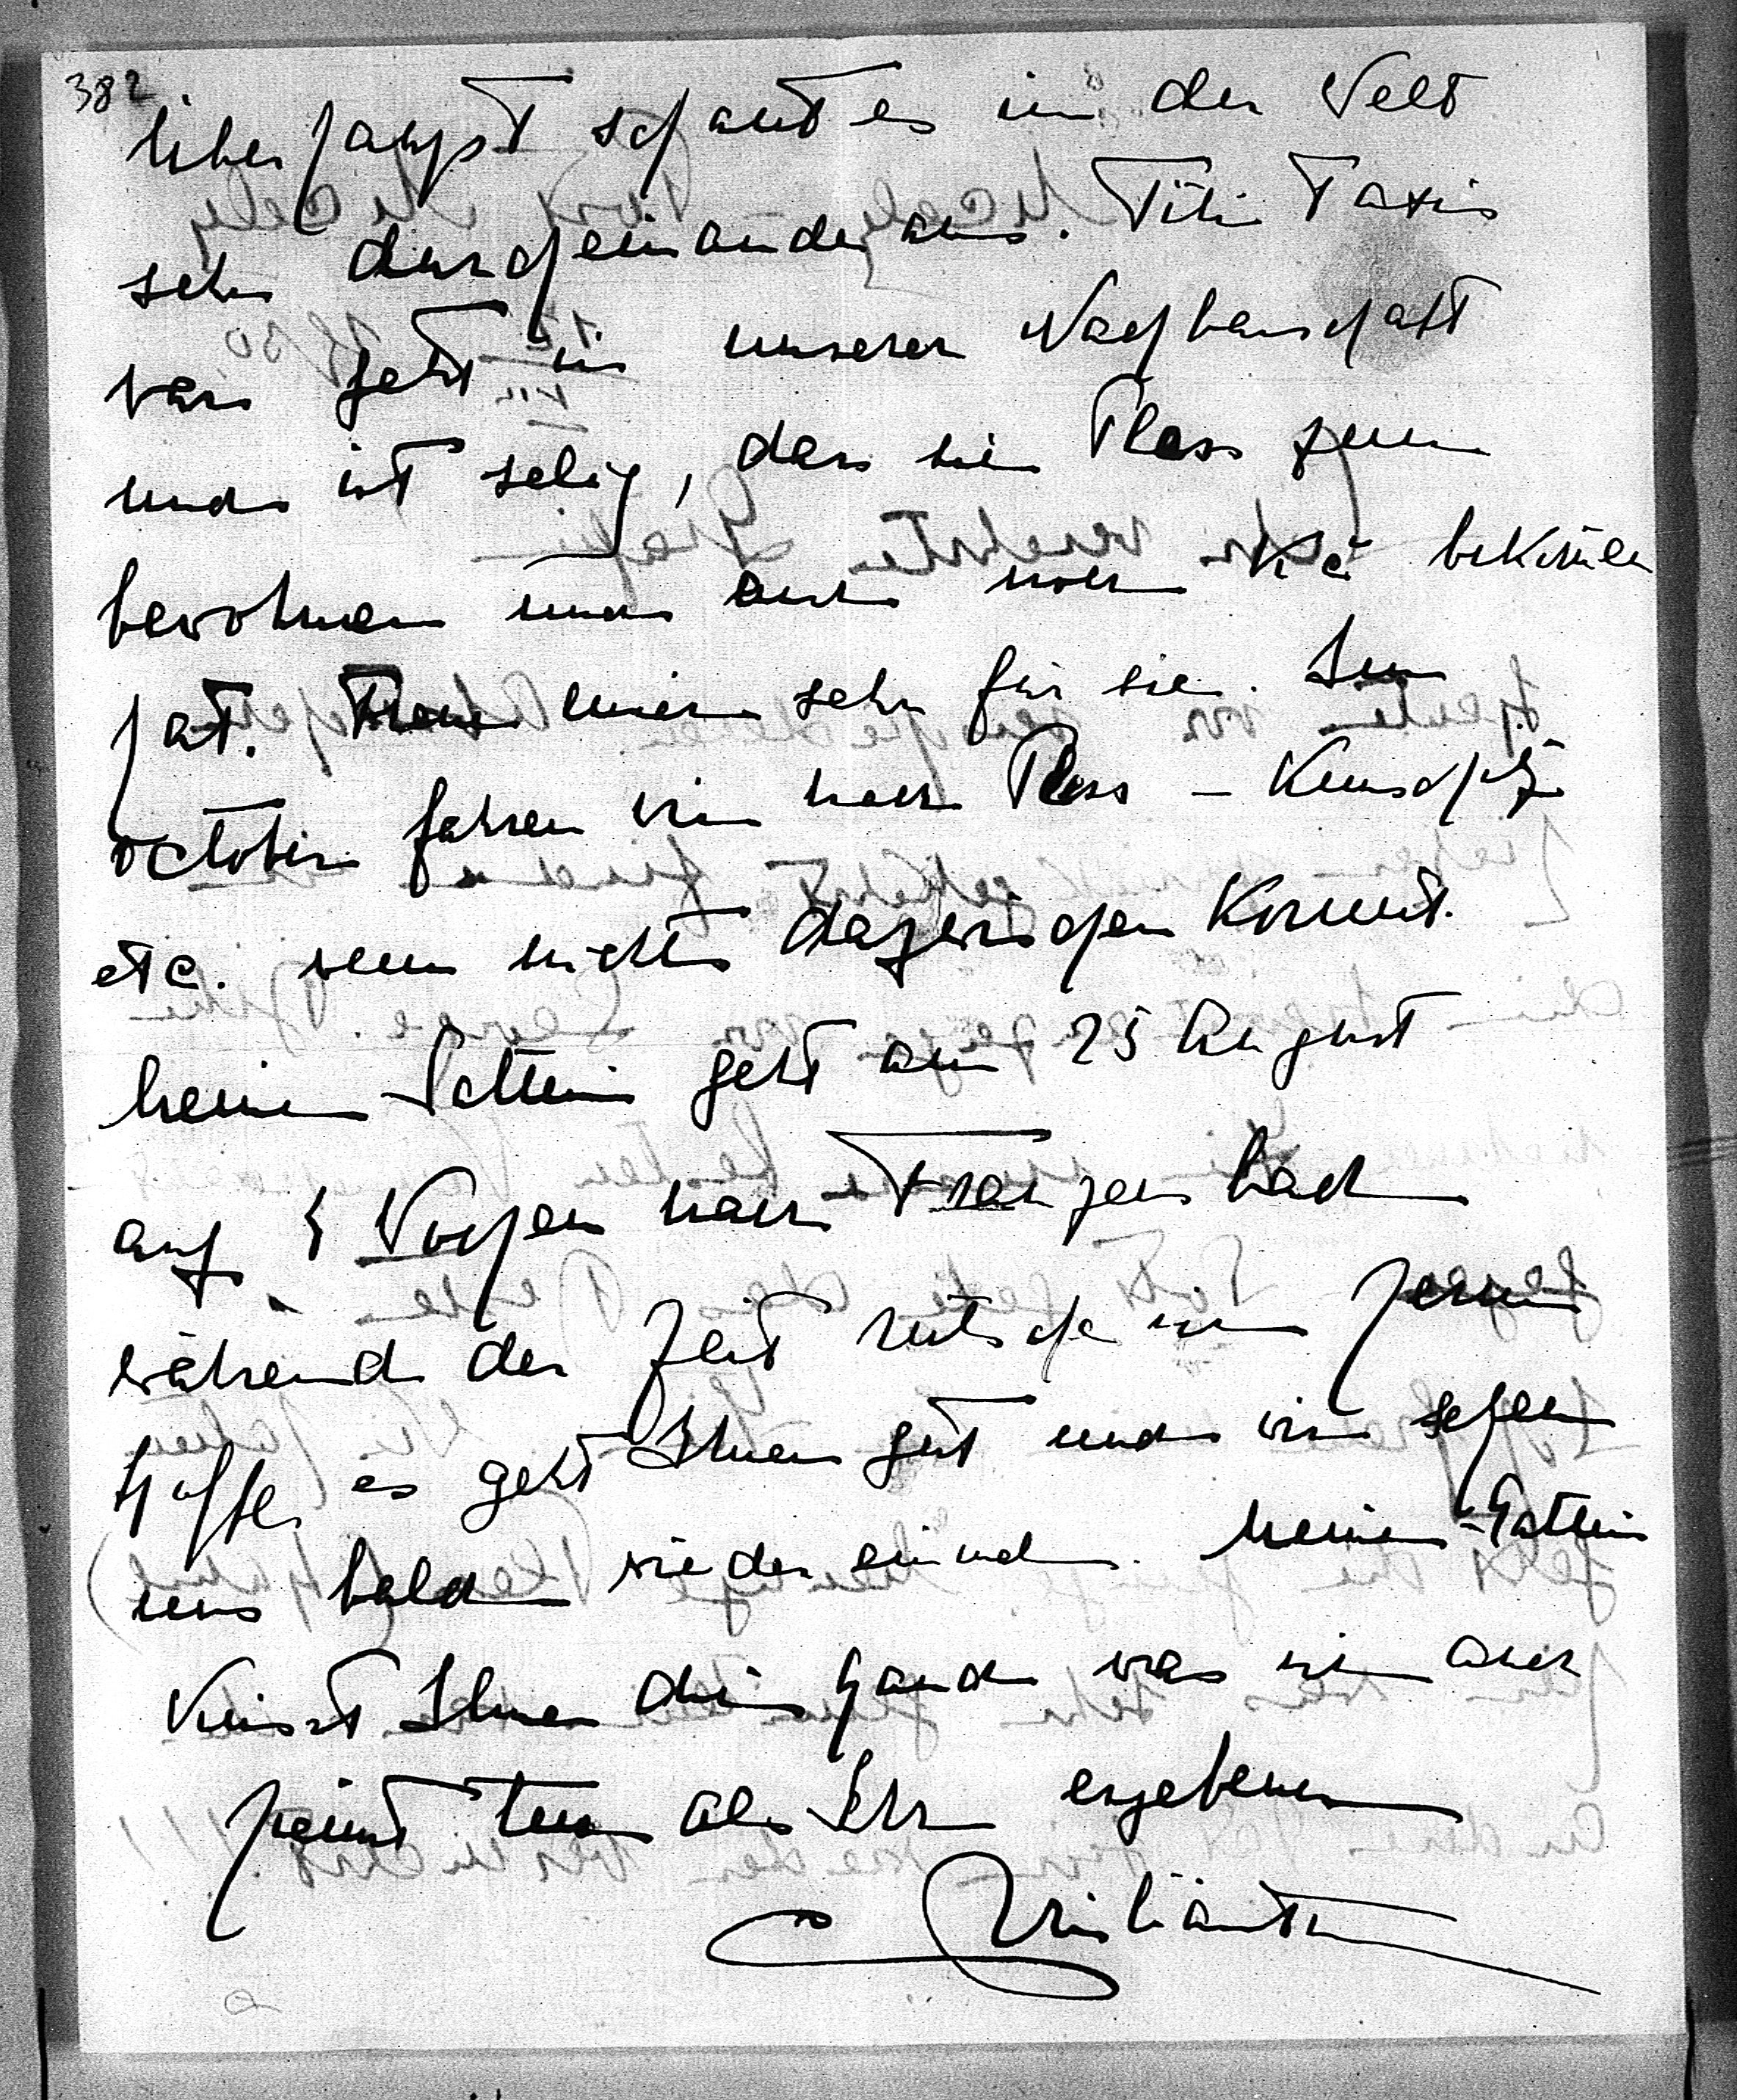 382
überhaupt schaut es in der Welt
sehr durcheinander aus. Titi Taxis
war jetzt in unserer Nachbarschaft
und ist selig, dass sie Pless zum
bewohnen und auch noch Kč bekom̄en
hat. Freue mich sehr für sie. Im
October fahren wir nach Pless –
etc. wenn nichts dazwischen kommt.
Meine Gattin geht am 25 August
auf 4 Wochen nach Franzensbad
während der Zeit rutsche ich herum
Hoffe es geht Ihnen gut und wir sehen
uns bald wieder einmal. Meine Gattin
küsst Ihnen die Hand was ich auch
heimit tue als Ihr ergebener